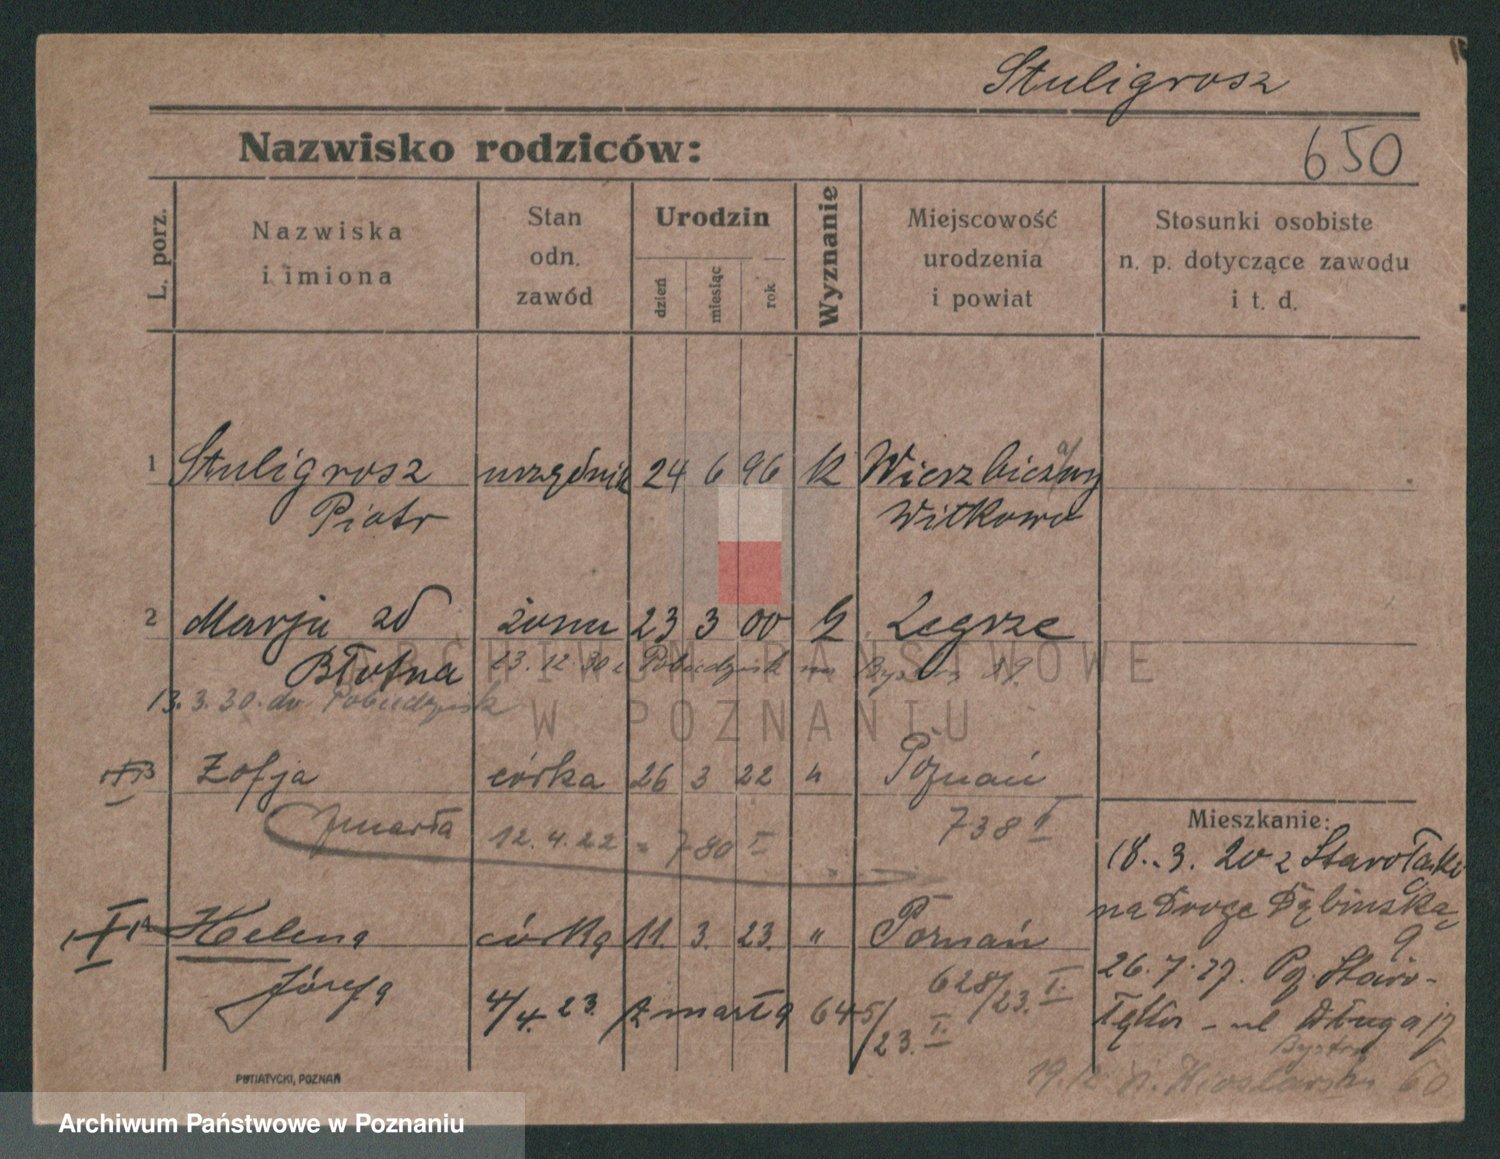 Stuligrosz
Nazwisko rodziców:
650
L. porz.
Nazwiska
i imiona
Stan
odn.
zawód
Urodzin
dzień
miesiąc
rok
Wyznanie
Miejscowość
urodzenia
i powiat
Stosunki osobiste
n. p. dotyczące zawodu
i t. d.
1 Stuligrosz urzędnik 24 6 96 k
Piotr Witkowo
2 Marja zd żona 23 3 00 Zegrze
Błotna 13.12.30 z Pobiedzisk na
13.3.30 do Pobiedzisk
3 Zofja córka 26 3 22 " Poznań
zmarła 12.4.22 = 780 I 738 II
Helena córka 11. 3. 23. " Poznań
Józefa 628/23. I.
4/4. 23. zmarła 645/23. I.
Mieszkanie:
18.. 3. 20 z Starołęki
na Drogę Dębińską
9
26.7.27. Staro-
łęka - ul Długa 17
Bystra
19.12 60
PUTIATYCKI, POZNAŃ
ARCHIWUM PAŃSTWOWE
W POZNANIU
Archiwum Państwowe w Poznaniu